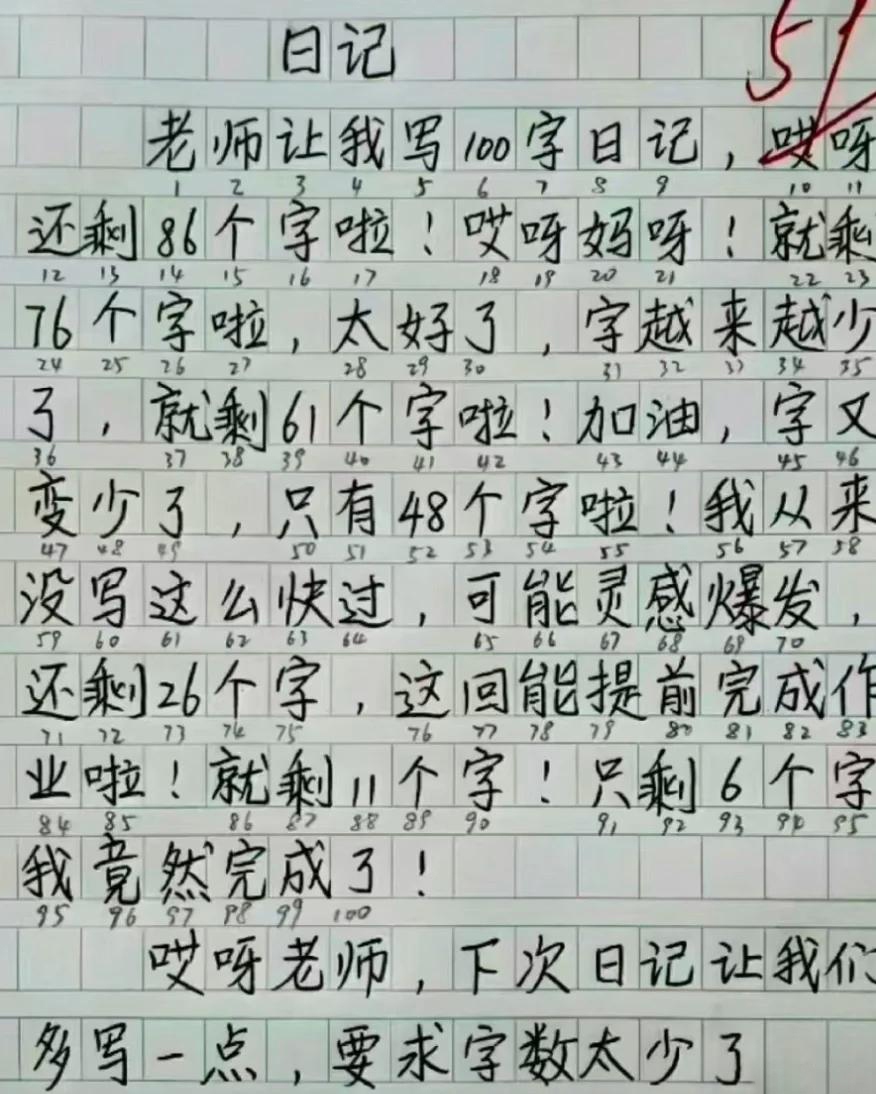 日记
51
老师让我写100字日记，哎呀
1 2 3 4 5 6 7 8 9 10 11
还剩86个字啦！哎呀妈呀！就剩
12 13 14 15 16 17 18 19 20 21 22 23
76个字啦，太好了，字越来越少
24 25 26 27 28 29 30 31 32 33 34 35
了，就剩61个字啦！加油，字又
36 37 38 39 40 41 42 43 44 45 46
变少了，只有48个字啦！我从来
47 48 49 50 51 52 53 54 55 56 57 58
没写这么快过，可能灵感爆发，
59 60 61 62 63 64 65 66 67 68 69 70
还剩26个字，这回能提前完成作
71 72 73 74 75 76 77 78 79 80 81 82 83
业啦！就剩11个字！只剩6个字
84 85 86 87 88 89 90 91 92 93 94 95
我竟然完成了！
95 96 97 98 99 100
哎呀老师，下次日记让我们
多写一点，要求字数太少了